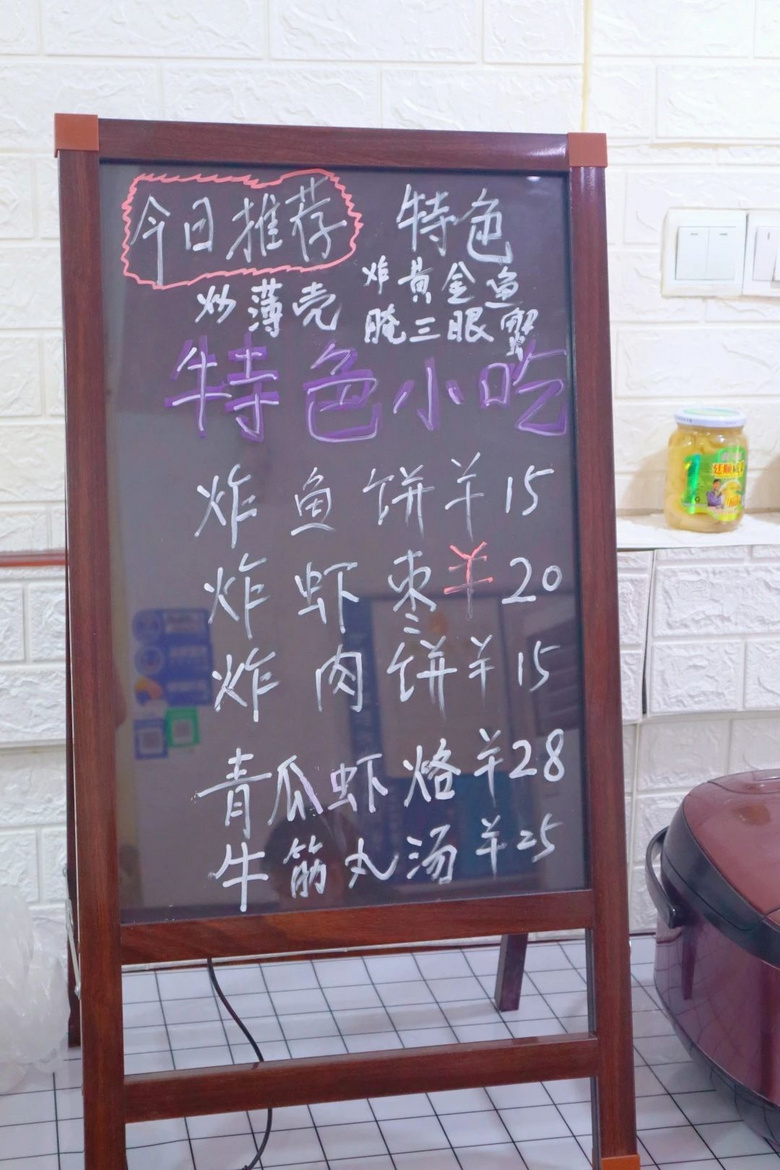 今日推荐 特色
炒薄壳 炸黄金鱼
腌三眼蟹
特色小吃
炸鱼饼¥15
炸虾枣¥20
炸肉饼¥15
青瓜虾烙¥28
牛筋丸汤¥25